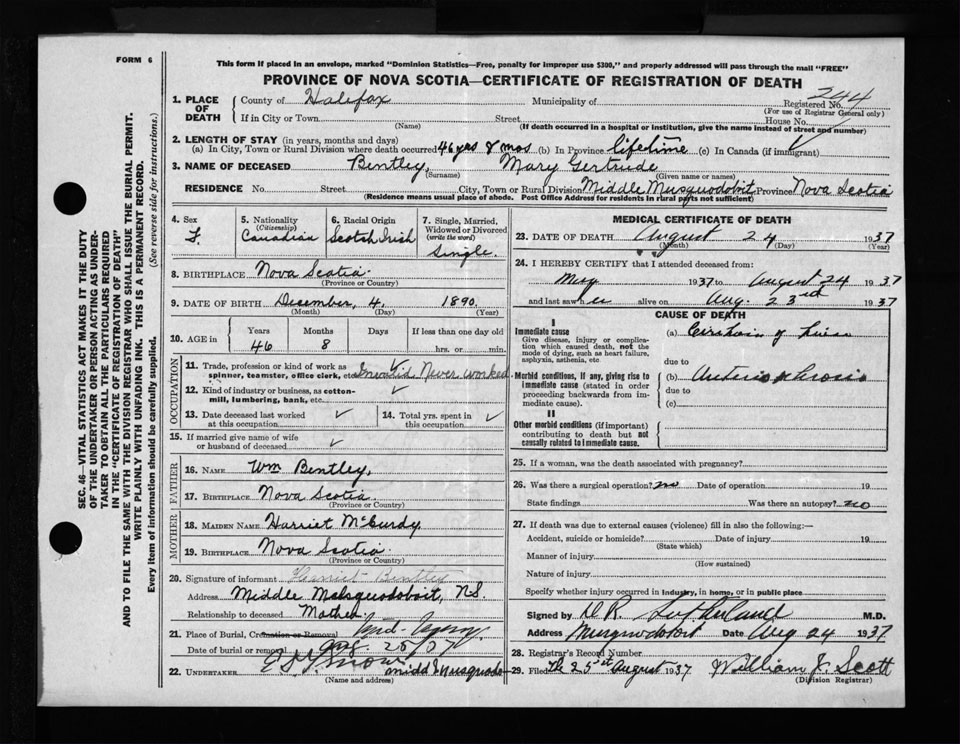 FORM 6
This form if placed in an envelope, marked "Dominion Statistics—Free, penalty for improper use $300," and properly addressed will pass through the mail "FREE"
PROVINCE OF NOVA SCOTIA—CERTIFICATE OF REGISTRATION OF DEATH
1. PLACE OF DEATH County of Halifax Municipality of Registered No. 244
(For use of Registrar General only)
If in City or Town Street House No.
(Name) (If death occurred in a hospital or institution, give the name instead of street and number)
2. LENGTH OF STAY (in years, months and days)
(a) In City, Town or Rural Division where death occurred 46 yrs 8 mos (b) In Province lifetime (c) In Canada (if immigrant) ✓
3. NAME OF DECEASED Bentley, Mary Gertrude
(Surname) (Given name or names)
RESIDENCE No. Street City, Town or Rural Division Middle Musquodoboit, Province Nova Scotia
(Residence means usual place of abode. Post Office Address for residents in rural parts not sufficient)
4. Sex 5. Nationality (Citizenship) 6. Racial Origin 7. Single, Married, Widowed or Divorced (write the word)
F. Canadian Scotch Irish Single.
8. BIRTHPLACE Nova Scotia.
(Province or Country)
9. DATE OF BIRTH December, 4, 1890.
(Month) (Day) (Year)
10. AGE in Years Months Days If less than one day old
46 8 hrs. or min.
OCCUPATION
11. Trade, profession or kind of work as spinner, teamster, office clerk, etc. Invalid Never worked
12. Kind of industry or business, as cotton-mill, lumbering, bank, etc. ✓
13. Date deceased last worked at this occupation ✓ 14. Total yrs. spent in this occupation ✓
15. If married give name of wife or husband of deceased ✓
FATHER
16. NAME Wm Bentley,
17. BIRTHPLACE Nova Scotia.
(Province or Country)
MOTHER
18. MAIDEN NAME Harriet McCurdy
19. BIRTHPLACE Nova Scotia.
(Province or Country)
20. Signature of informant Harriet Bentley
Address Middle Musquodoboit, N.S.
Relationship to deceased Mother.
21. Place of Burial, Cremation or Removal
Date of burial or removal Aug. 25/37
22. UNDERTAKER Snow Midd Musquodo
(Name and address)
MEDICAL CERTIFICATE OF DEATH
23. DATE OF DEATH August 24 1937
(Month) (Day) (Year)
24. I HEREBY CERTIFY that I attended deceased from:
May 1937 to August 24 1937
and last saw her alive on Aug. 23rd 1937
CAUSE OF DEATH
I
Immediate cause
Give disease, injury or complication which caused death, not the mode of dying, such as heart failure, asphyxia, asthenia, etc.
(a) Cirrhosis of Liver
due to
Morbid conditions, if any, giving rise to immediate cause (stated in order proceeding backwards from immediate cause).
(b) Arteriosclerosis
due to
(c)
II
Other morbid conditions (if important) contributing to death but not causally related to immediate cause.
25. If a woman, was the death associated with pregnancy?
26. Was there a surgical operation? no Date of operation 19
State findings Was there an autopsy? no
27. If death was due to external causes (violence) fill in also the following:—
Accident, suicide or homicide? Date of injury 19
(State which)
Manner of injury
(How sustained)
Nature of injury
Specify whether injury occurred in Industry, in home, or in public place
Signed by D R Sutherland M.D.
Address Musquodoboit Date Aug 24 1937
28. Registrar's Record Number
29. Filed The 25st August 1937 William J. Scott
(Division Registrar)
SEC. 46—VITAL STATISTICS ACT MAKES IT THE DUTY
OF THE UNDERTAKER OR PERSON ACTING AS UNDER-
TAKER TO OBTAIN ALL THE PARTICULARS REQUIRED
IN THE "CERTIFICATE OF REGISTRATION OF DEATH"
AND TO FILE THE SAME WITH THE DIVISION REGISTRAR WHO SHALL ISSUE THE BURIAL PERMIT.
WRITE PLAINLY WITH UNFADING INK. THIS IS A PERMANENT RECORD.
Every item of information should be carefully supplied. (See reverse side for instructions.)